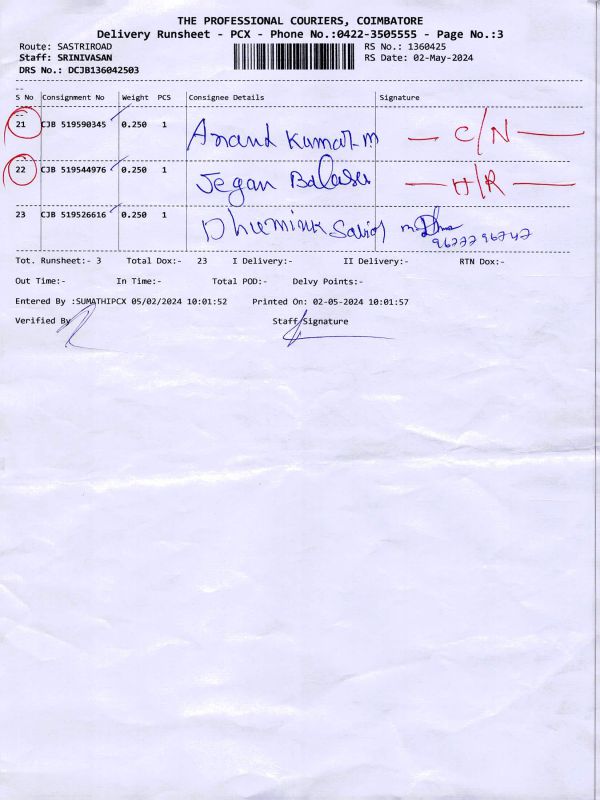 THE PROFESSIONAL COURIERS, COIMBATORE
Delivery Runsheet - PCX - Phone No.:0422-3505555 - Page No.:3
Route: SASTRIROAD RS No.: 1360425
Staff: SRINIVASAN RS Date: 02-May-2024
DRS No.: DCJB136042503
S No Consignment No Weight PCS Consignee Details Signature
21 CJB 519590345 0.250 1 Anand Kumar.m C/N
22 CJB 519544976 0.250 1 Jegan H/R
23 CJB 519526616 0.250 1
Tot. Runsheet:- 3 Total Dox:- 23 I Delivery:- II Delivery:- RTN Dox:-
Out Time:- In Time:- Total POD:- Delvy Points:-
Entered By :SUMATHIPCX 05/02/2024 10:01:52 Printed On: 02-05-2024 10:01:57
Verified By Staff Signature